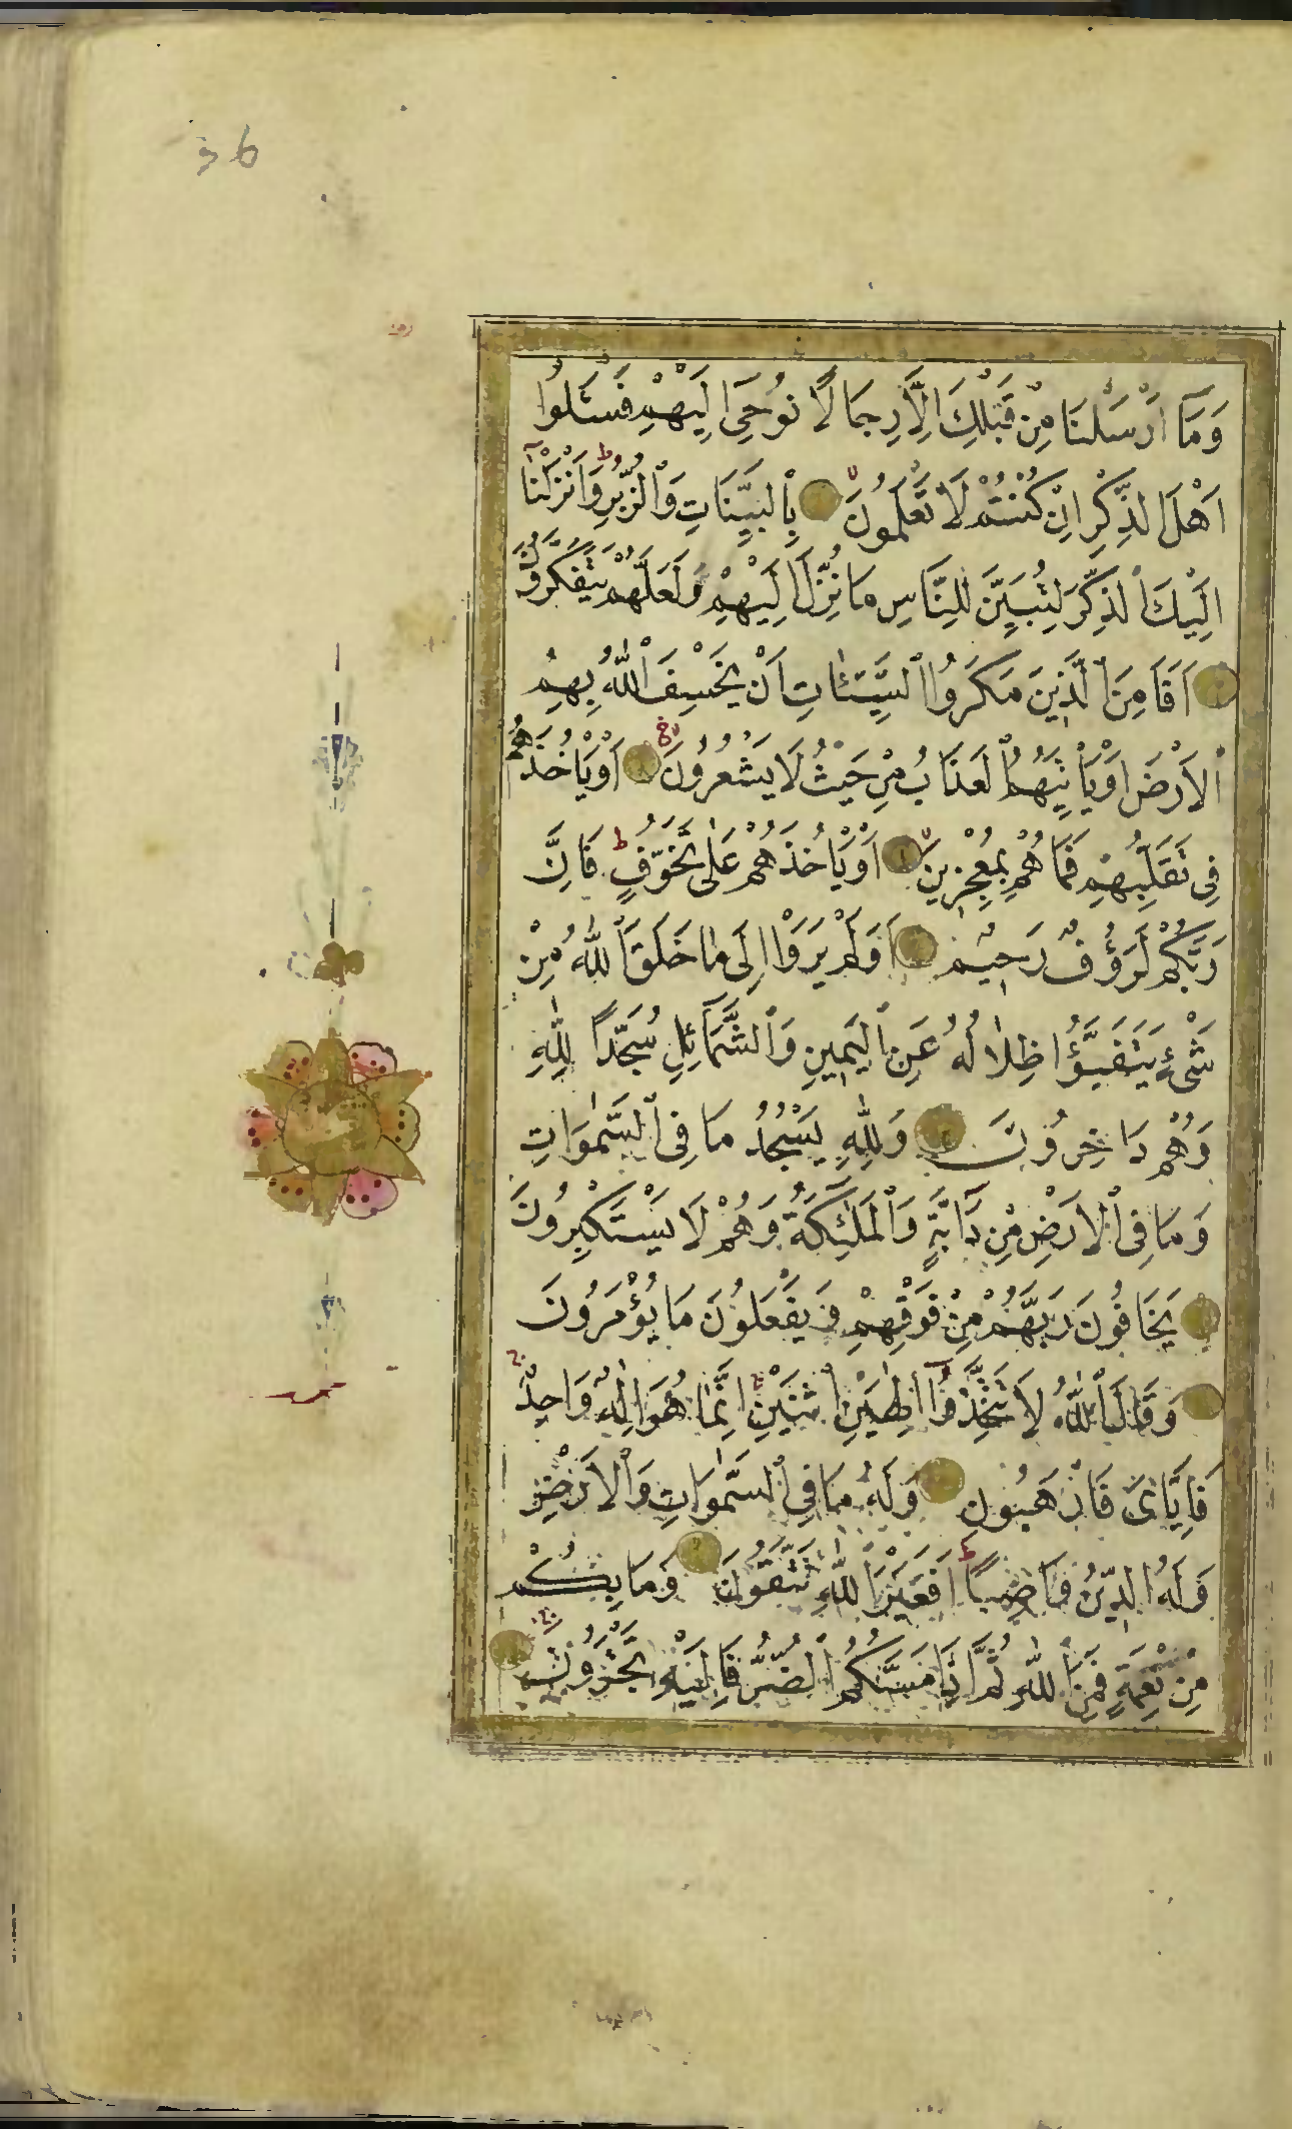 36
وَمَآ اَرْسَلْنَا مِنْ قَبْلِكَ اِلَّا رِجَالًا نُوحِىٓ اِلَيْهِمْ فَسْئَلُوٓا
اَهْلَ الذِّكْرِ اِنْ كُنْتُمْ لَا تَعْلَمُونَ بِالْبَيِّنَاتِ وَالزُّبُرِ وَاَنْزَلْنَآ
اِلَيْكَ الذِّكْرَ لِتُبَيِّنَ لِلنَّاسِ مَا نُزِّلَ اِلَيْهِمْ وَلَعَلَّهُمْ يَتَفَكَّرُونَ
اَفَاَمِنَ الَّذِينَ مَكَرُوا السَّيِّئَاتِ اَنْ يَخْسِفَ اللّٰهُ بِهِمُ
الْاَرْضَ اَوْ يَاْتِيَهُمُ الْعَذَابُ مِنْ حَيْثُ لَا يَشْعُرُونَ اَوْ يَاْخُذَهُمْ
فِى تَقَلُّبِهِمْ فَمَا هُمْ بِمُعْجِزِينَ اَوْ يَاْخُذَهُمْ عَلٰى تَخَوُّفٍ فَاِنَّ
رَبَّكُمْ لَرَؤُفٌ رَحِيمٌ اَوَلَمْ يَرَوْا اِلٰى مَا خَلَقَ اللّٰهُ مِنْ
شَىْءٍ يَتَفَيَّؤُا ظِلَالُهُ عَنِ الْيَمِينِ وَالشَّمَآئِلِ سُجَّدًا لِلّٰهِ
وَهُمْ دَاخِرُونَ وَلِلّٰهِ يَسْجُدُ مَا فِى السَّمٰوَاتِ
وَمَا فِى الْاَرْضِ مِنْ دَآبَّةٍ وَالْمَلٰٓئِكَةُ وَهُمْ لَا يَسْتَكْبِرُونَ
يَخَافُونَ رَبَّهُمْ مِنْ فَوْقِهِمْ وَيَفْعَلُونَ مَا يُؤْمَرُونَ
وَقَالَ اللّٰهُ لَا تَتَّخِذُوٓا اِلٰهَيْنِ اثْنَيْنِ اِنَّمَا هُوَ اِلٰهٌ وَاحِدٌ
فَاِيَّاىَ فَارْهَبُونِ وَلَهُ مَا فِى السَّمٰوَاتِ وَالْاَرْضِ
وَلَهُ الدِّينُ وَاصِبًا اَفَغَيْرَ اللّٰهِ تَتَّقُونَ وَمَا بِكُمْ
مِنْ نِعْمَةٍ فَمِنَ اللّٰهِ ثُمَّ اِذَا مَسَّكُمُ الضُّرُّ فَاِلَيْهِ تَجْئَرُونَ